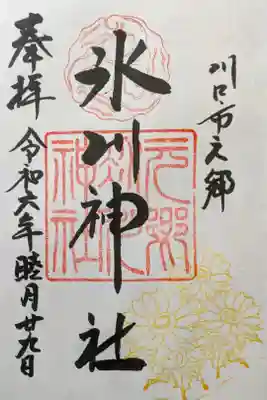 川口市元郷
氷川神社
元郷氷川神社
奉拝
令和六年睦月廿九日